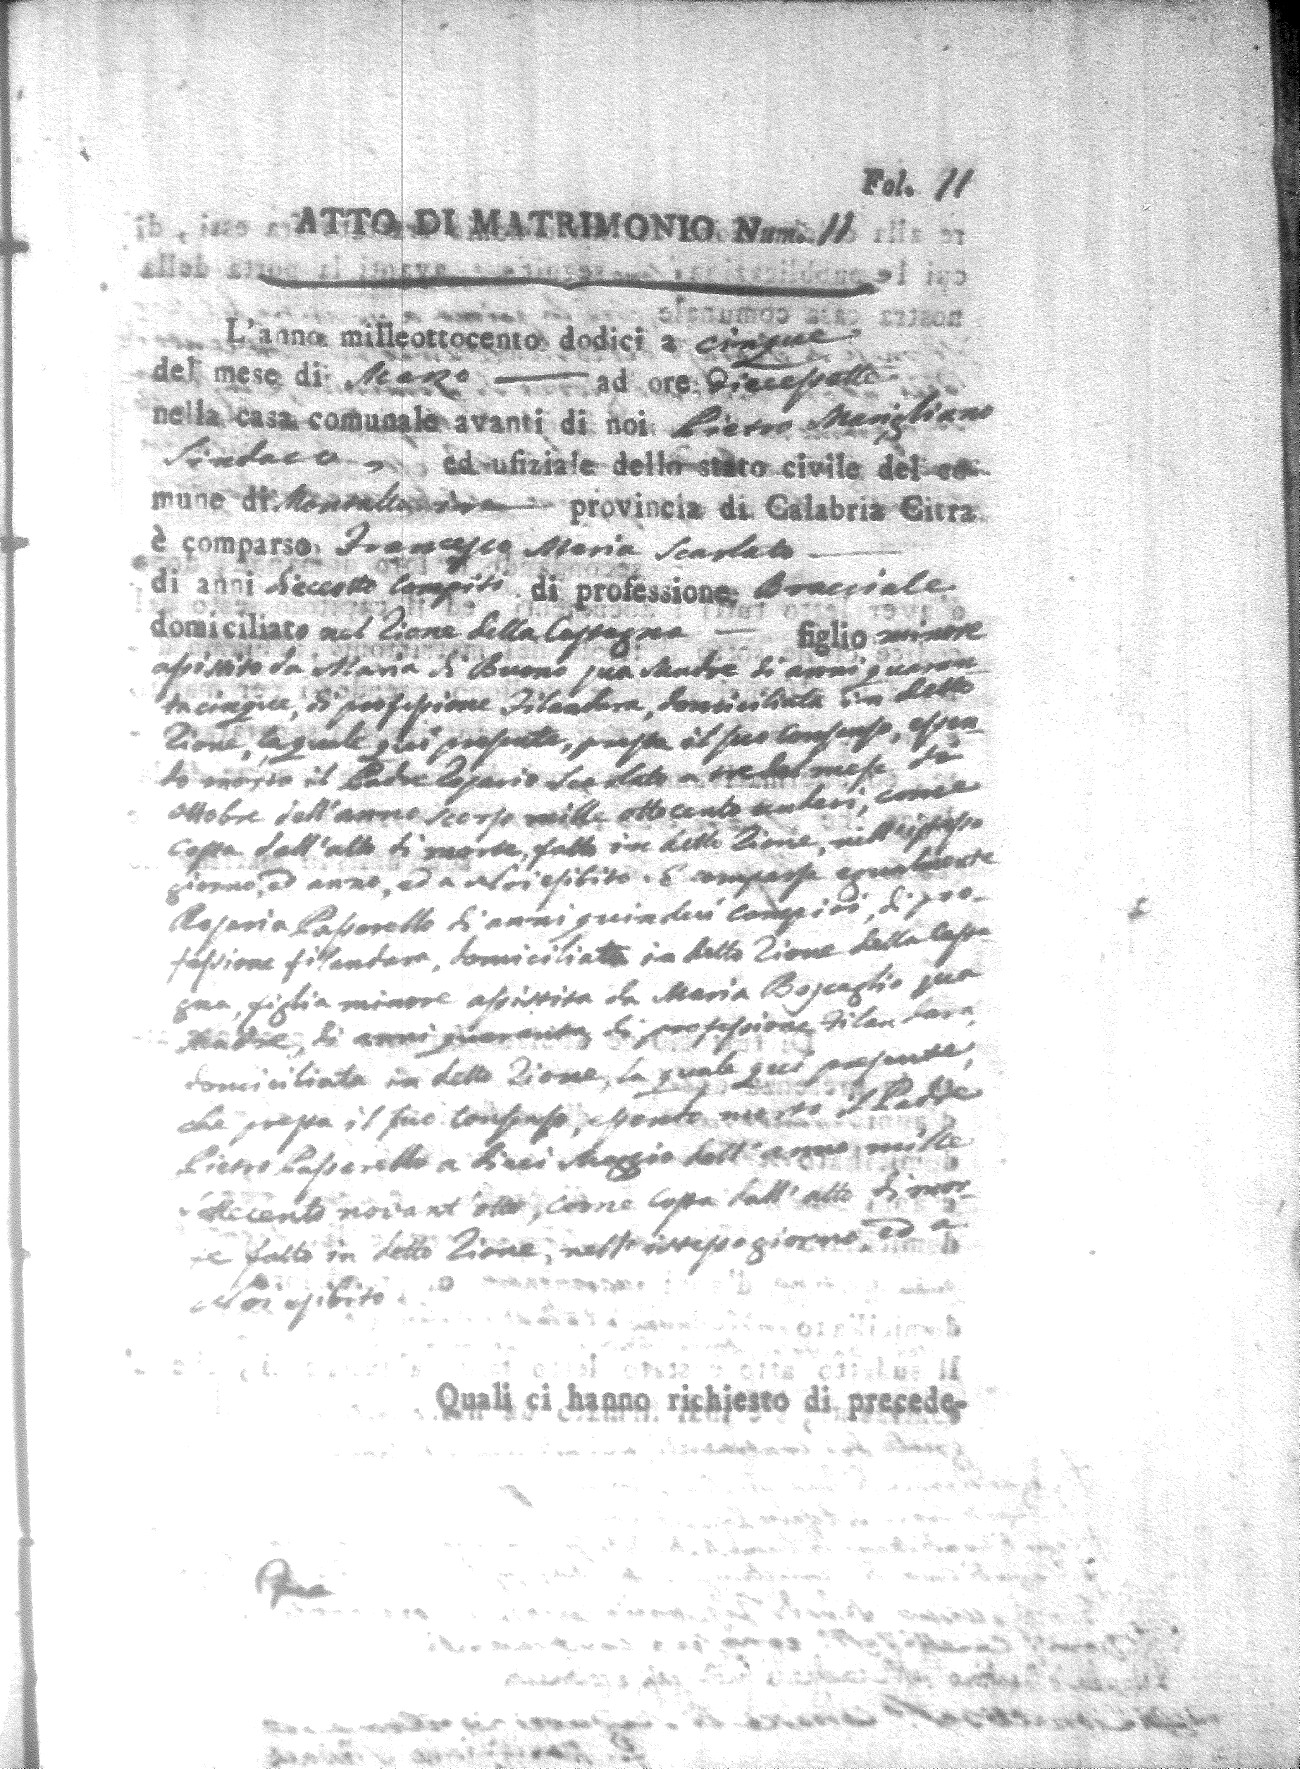 Fol. 11
ATTO DI MATRIMONIO Num. 11
L'anno milleottocento dodici a cinque
del mese di Marzo ad ore Diecessette
nella casa comunale avanti di noi Pietro Marigliano
Sindaco, ed ufiziale dello stato civile del co-
mune di Montalto provincia di Calabria Citra
è comparso Francesco Maria Scarlato
di anni dieceotto compiti di professione Bracciale
domiciliato nel Rione della Cassagna figlio minore
assistito da Maria di Buono sua Madre di anni quaran-
tacinque, di professione Filandara, domiciliata in detto
Rione, la quale qui presente, presta il suo consenso, essen-
do morto il Padre Rosario Scarlato a tre del mese di
ottobre dell'anno scorso mille ottocento undeci, come
costa dall'atto di morte, fatto in detto Rione, nell'istesso
giorno, ed anno, ed a Noi esibito. E comparsa egualmente
Rosaria Passarello di anni quindeci compiti, di pro-
fessione filandara, domiciliata in detto Rione della Cassa
gna, figlia minore assistita da Maria Boscaglio sua
Madre, di anni quaranta di professione Filandara,
domiciliata in detto Rione, la quale qui presente,
che presta il suo consenso, essendo morto il Padre
Pietro Passarello a dieci Maggio dell'anno mille
settecento novant'otto, come costa dall'atto di mor
te fatto in detto Rione, nell'istesso giorno, ed a
Noi esibito.
Quali ci hanno richiesto di precede-